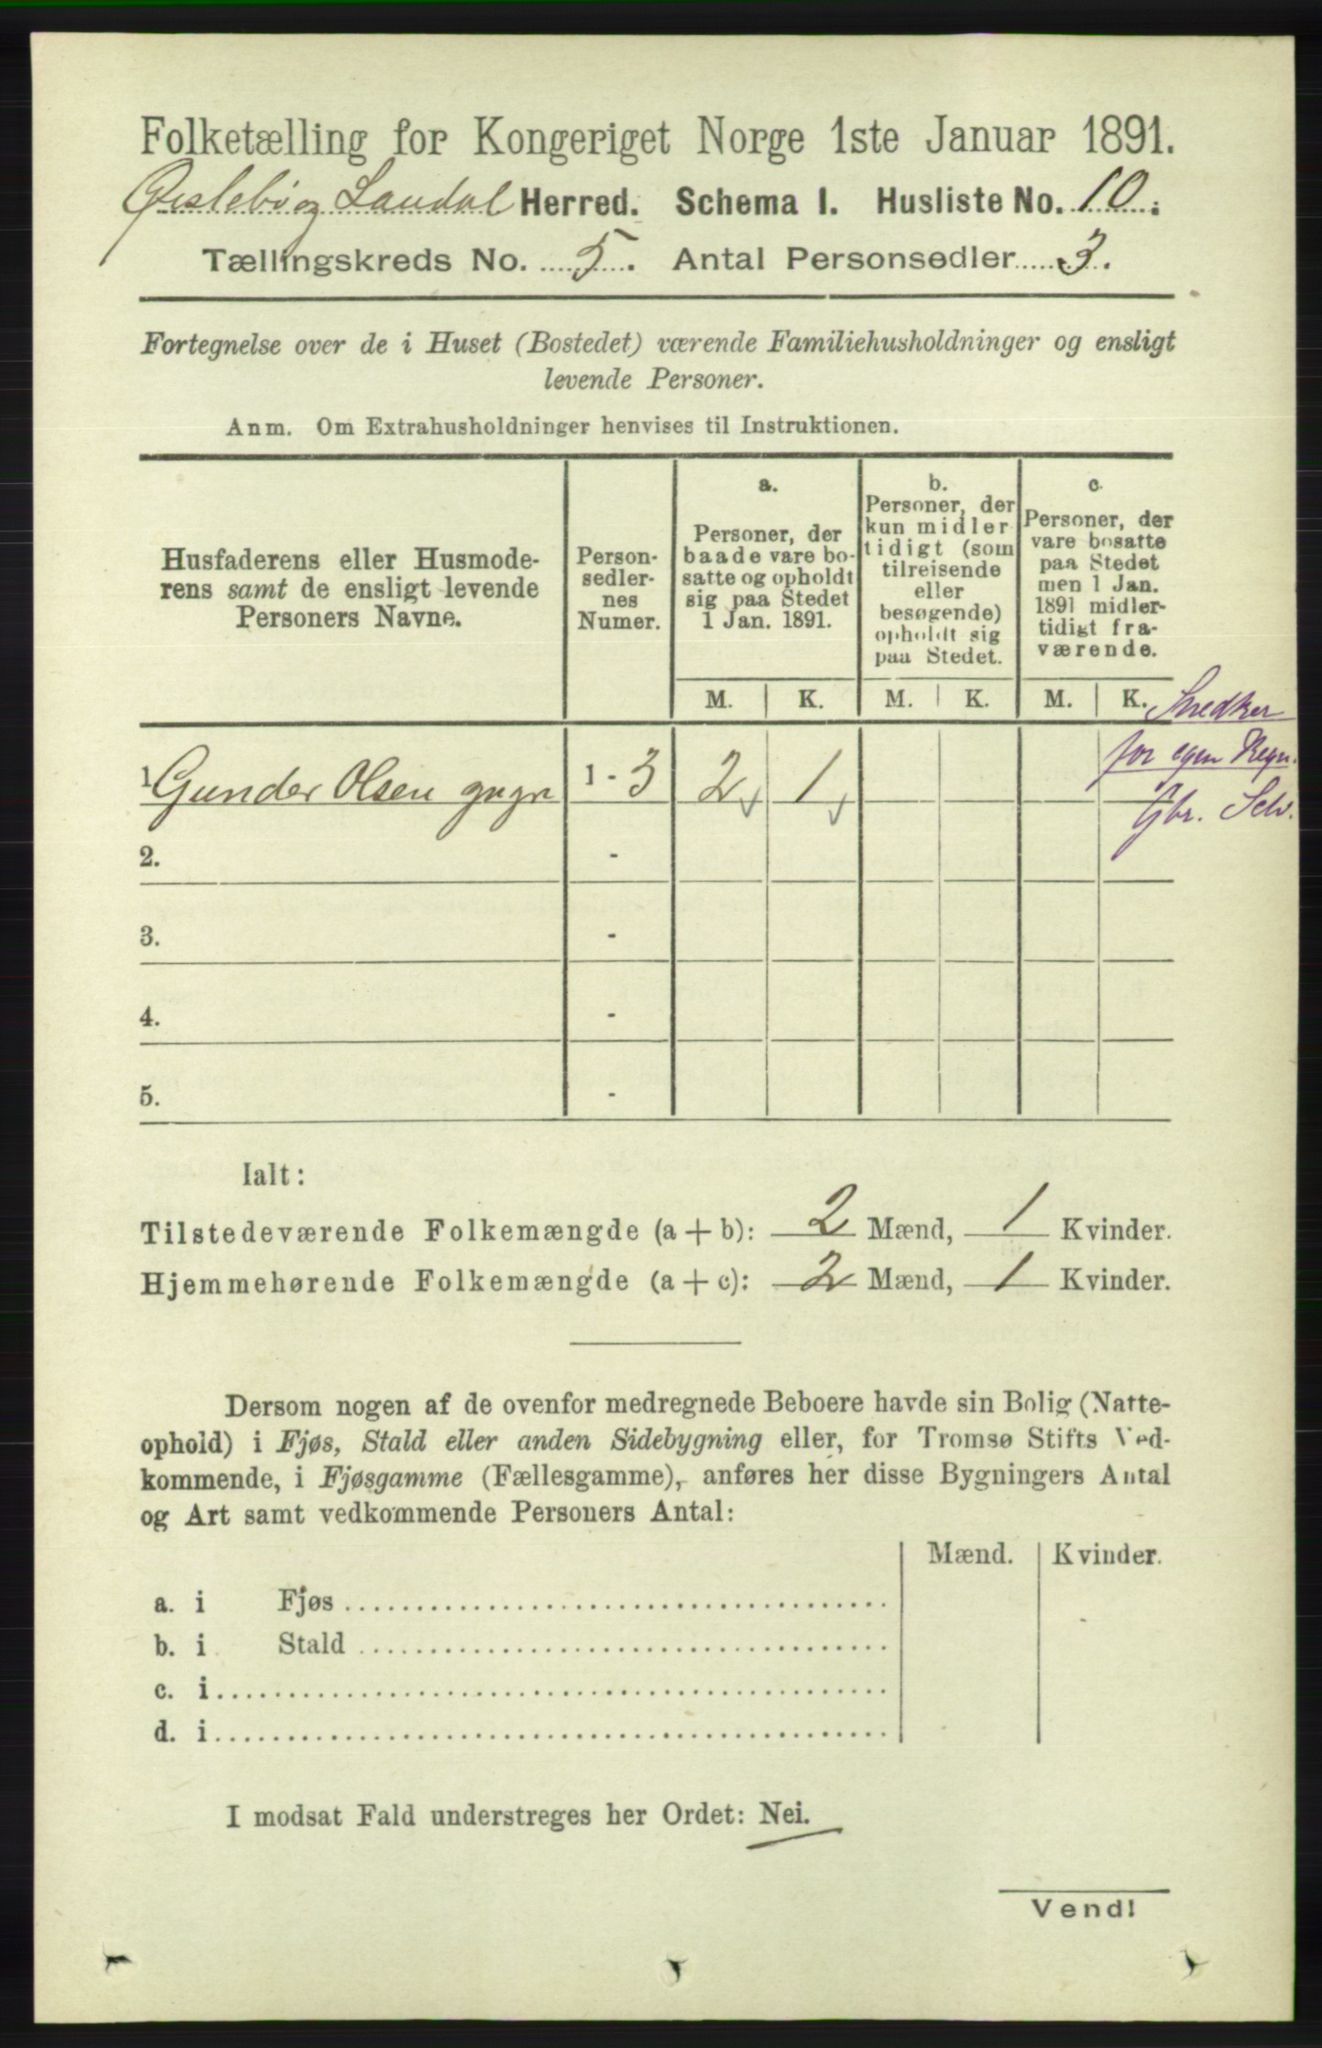 Folketælling for Kongeriget Norge 1ste Januar 1891.
Øislebø og Laudal Herred. Schema I. Husliste No. 10.
Tællingskreds No. 5. Antal Personsedler 3.
Fortegnelse over de i Huset (Bostedet) værende Familiehusholdninger og ensligt
levende Personer.
Anm. Om Extrahusholdninger henvises til Instruktionen.
Husfaderens eller Husmode-
rens samt de ensligt levende
Personers Navne.
Person-
sedler-
nes
Numer.
a.
Personer, der
baade vare bo-
satte og opholdt
sig paa Stedet
1 Jan. 1891.
b.
Personer, der
kun midler-
tidigt (som
tilreisende
eller
besøgende)
opholdt sig
paa Stedet.
c.
Personer, der
vare bosatte
paa Stedet
men 1 Jan.
1891 midler-
tidigt fra-
værende.
M. K. M. K. M. K.
Snedker
for egen Regn.
Gbr. Selv.
1 Gunder Olsen 1 - 3 2 1
2. -
3. -
4. -
5. -
Ialt:
Tilstedeværende Folkemængde (a + b): 2 Mænd, 1 Kvinder.
Hjemmehørende Folkemængde (a + c): 2 Mænd, 1 Kvinder.
Dersom nogen af de ovenfor medregnede Beboere havde sin Bolig (Natte-
ophold) i Fjøs, Stald eller anden Sidebygning eller, for Tromsø Stifts Ved-
kommende, i Fjøsgamme (Fællesgamme), anføres her disse Bygningers Antal
og Art samt vedkommende Personers Antal:
Mænd. Kvinder.
a. i Fjøs
b. i Stald
c. i
d. i
I modsat Fald understreges her Ordet: Nei.
Vend!